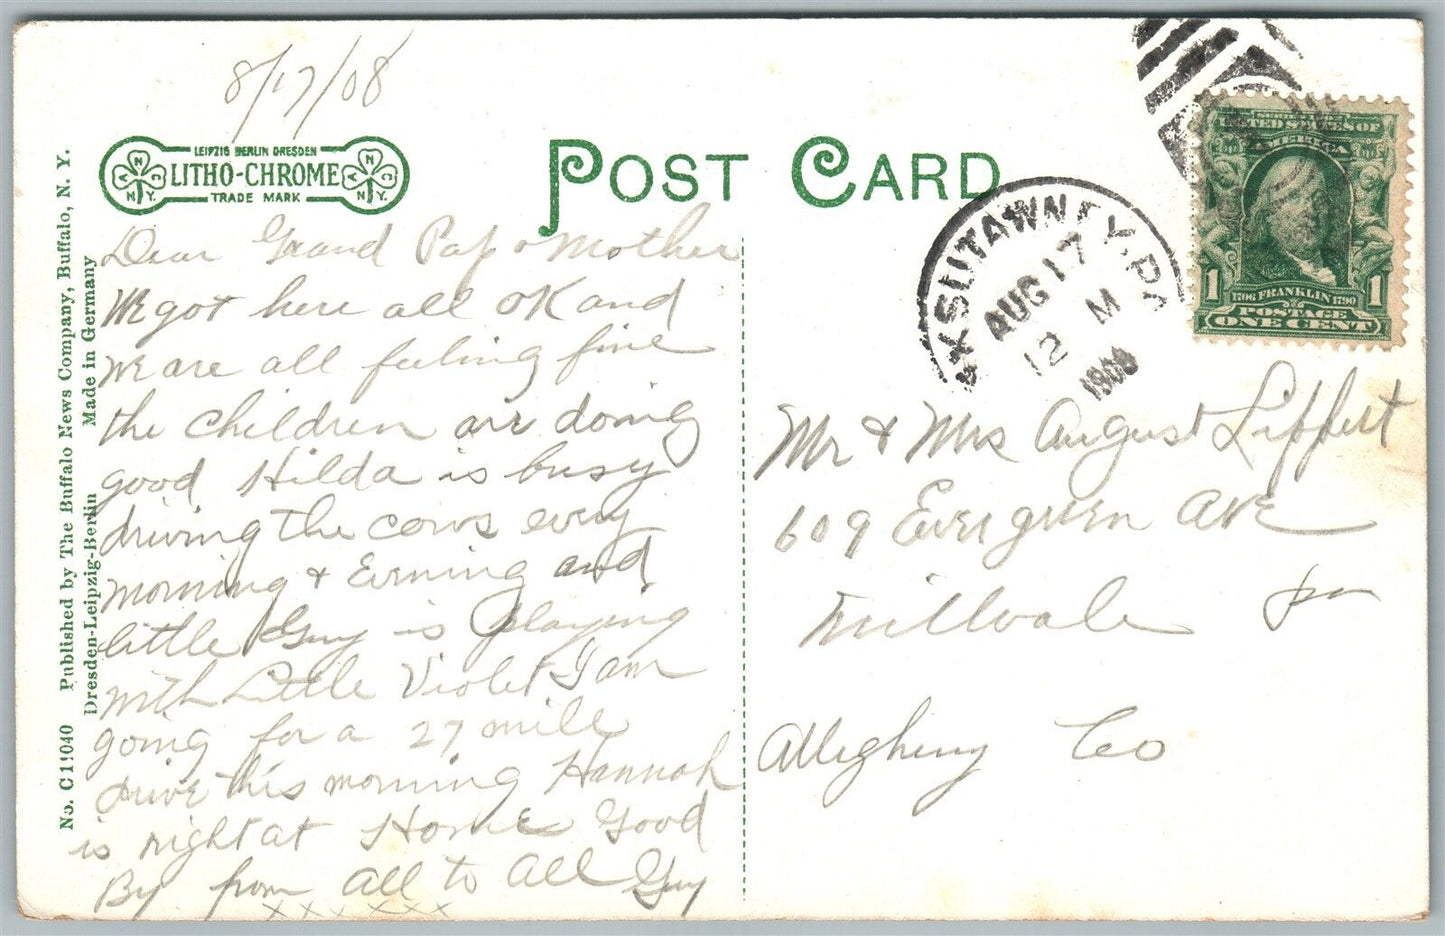 8/17/08
LEIPZIG BERLIN DRESDEN
LITHO-CHROME
TRADE MARK
A N C N.Y.
A N C N.Y.
POST CARD
No. C11040 Published by The Buffalo News Company, Buffalo, N. Y.
Dresden-Leipzig-Berlin Made in Germany
Dear Grand Pap & Mother
We got here all OK and
we are all feeling fine
the children are doing
good Hilda is busy
driving the cows every
morning & Evening and
little Guy is playing
with Little Violet I am
going for a 27 mile
drive this morning Hannah
is right at Home Good
By from all to all Guy
x x x x x x
XSUTAWNEY, PA
AUG 17
12 M
190
UNITED STATES OF
AMERICA
1 1
1706 FRANKLIN 1790
POSTAGE
ONE CENT
Mr & Mrs August Lippert
609 Evergreen Ave
Millvale Pa
Allegheny Co